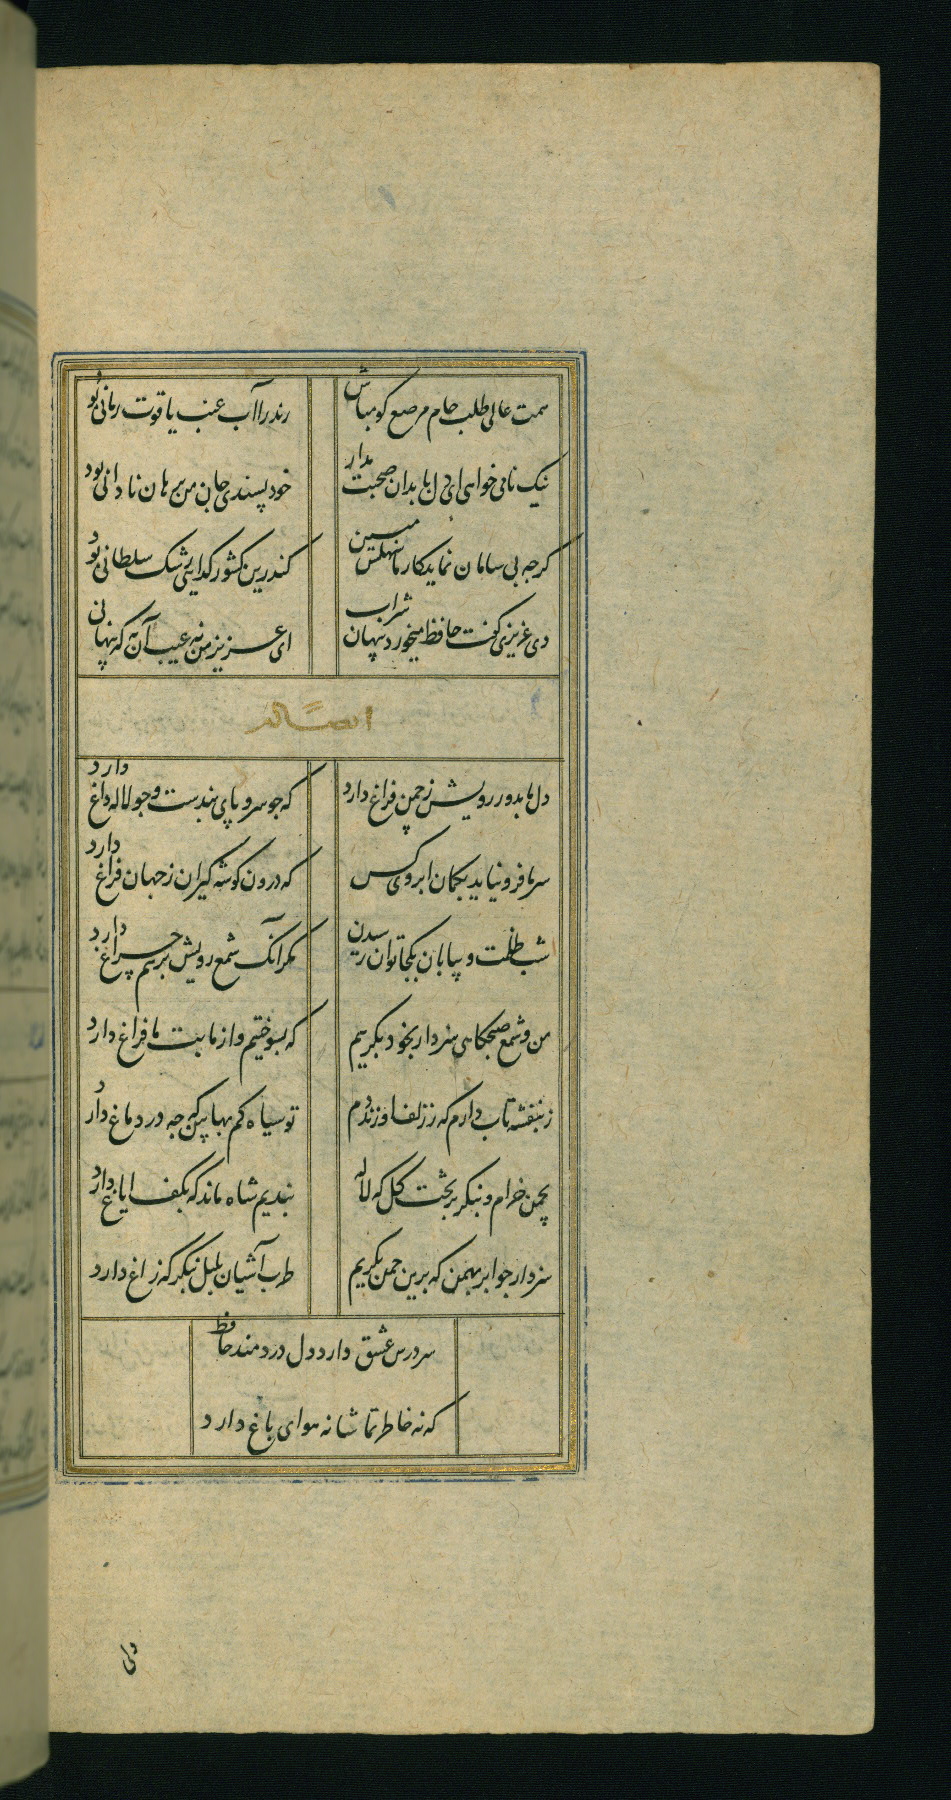 همت عالی طلب جام مرصع کو مباش
رند را آب عنب یاقوت رمانی بود
نیک نامی خواهی ای دل با بدان صحبت مدار
خود پسندی جان من برهان نادانی بود
کرجه بی سامان نماید کار ما سهلش مبین
کندرین کشور کدایی رشک سلطانی بود
دی عزیزی کفت حافظ میخورد پنهان شراب
ای عزیز من نه عیب آن به که پنهانی
ایضا له
دل ما بدور رویش ز چمن فراغ دارد
که جو سرو پای بندست و جو لاله داغ دارد
سر ما فرو نیاید بکمان ابروی کس
که درون کوشه کیران ز جهان فراغ دارد
شب ظلمت و بیابان بکجا توان رسیدن
مکر آنک شمع رویش برهم چراغ دارد
من و شمع صبحکاهی سزد ار بخود بکرییم
که بسوختیم و از ما بت ما فراغ دارد
ز بنفشه تاب دارم که ز زلف او زند دم
تو سیاه کم بها بین که جه در دماغ دارد
بچمن خرام و بنکر بر تخت کل که لاله
بندیم شاه ماند که بکف ایاغ دارد
سزد ار جو ابر بهمن که برین جمن بکریم
طرب آشیان بلبل بنکر که زاغ دارد
سر درس عشق دارد دل دردمند حافظ
که نه خاطر تماشا نه هوای باغ دارد